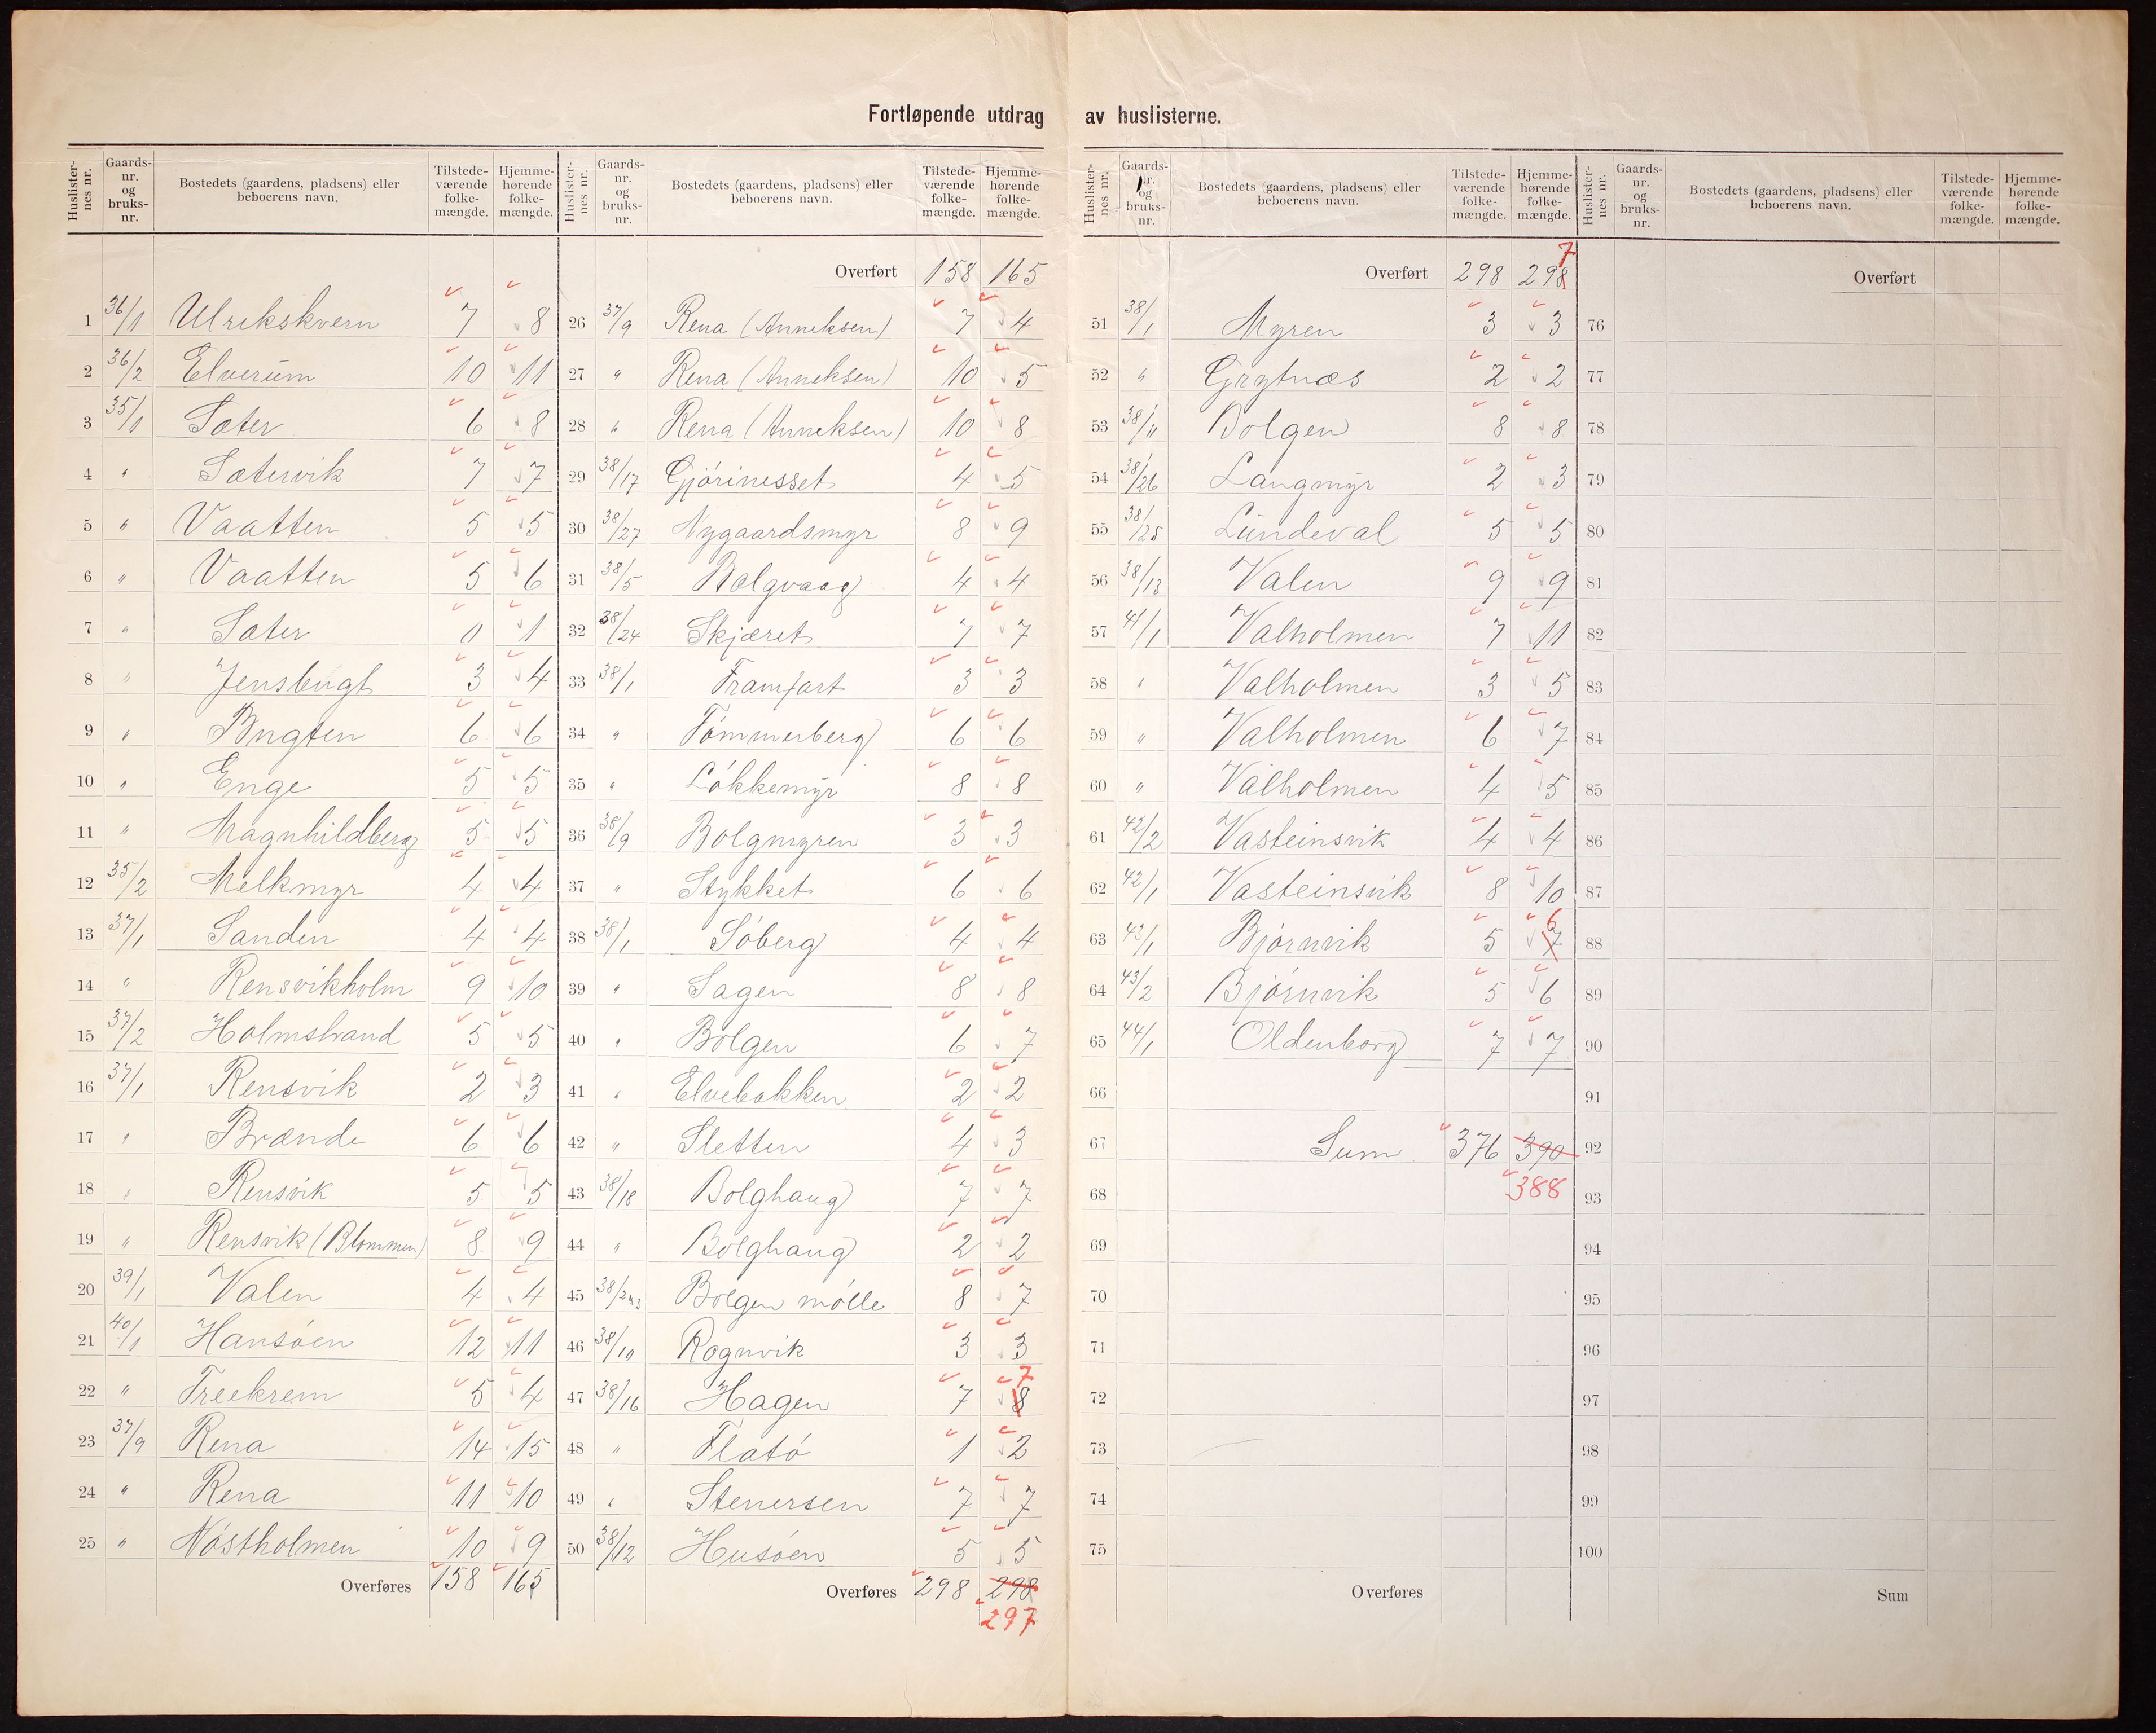 Fortløpende utdrag av huslisterne.
Huslister-nes nr. Gaards-nr. og bruks-nr. Bostedets (gaardens, pladsens) eller beboerens navn. Tilstede-værende folke-mængde. Hjemme-hørende folke-mængde.
1 36/1 Ulrikskvern 7 8
2 36/2 Elverum 10 11
3 35/1 Sæter 6 8
4 " Sætervik 7 7
5 " Vaatten 5 5
6 " Vaatten 5 6
7 " Sæter 0 1
8 " Jensbugt 3 4
9 " Bugten 6 6
10 " Enge 5 5
11 " Magnhildberg 5 5
12 35/2 Melkmyr 4 4
13 37/1 Sanden 4 4
14 " Rensvikholm 9 10
15 37/2 Holmstrand 5 5
16 37/1 Rensvik 2 3
17 " Brænde 6 6
18 " Rensvik 5 5
19 " Rensvik (Blommen) 8 9
20 39/1 Valen 4 4
21 40/1 Hansøen 12 11
22 " Treekrem 5 4
23 37/9 Rena 14 15
24 " Rena 11 10
25 " Nøstholmen 10 9
Overføres 158 165
Huslister-nes nr. Gaards-nr. og bruks-nr. Bostedets (gaardens, pladsens) eller beboerens navn. Tilstede-værende folke-mængde. Hjemme-hørende folke-mængde.
Overført 158 165
26 37/9 Rena (Anneksen) 7 4
27 " Rena (Anneksen) 10 5
28 " Rena (Anneksen) 10 8
29 38/17 Gjørinesset 4 5
30 38/27 Nygaardsmyr 8 9
31 38/5 Bolgvaag 4 4
32 38/24 Skjæret 7 7
33 38/1 Framfart 3 3
34 " Tømmerberg 6 6
35 " Løkkemyr 8 8
36 38/9 Bolgmyren 3 3
37 " Stykket 6 6
38 38/1 Søberg 4 4
39 " Sagen 8 8
40 " Bolgen 6 7
41 " Elvebakken 2 2
42 " Sletten 4 3
43 38/18 Bolghaug 7 7
44 " Bolghaug 2 2
45 Bolgen mølle 8 7
46 38/10 Rognvik 3 3
47 38/16 Hagen 7 8 7
48 " Flatø 1 2
49 " Stenersen 7 7
50 38/12 Husøen 5 5
Overføres 298 298
297
Huslister-nes nr. Gaards-nr. og bruks-nr. Bostedets (gaardens, pladsens) eller beboerens navn. Tilstede-værende folke-mængde. Hjemme-hørende folke-mængde.
Overført 298 298 7
51 38/1 Myren 3 3
52 " Grytnæs 2 2
53 38/11 Bolgen 8 8
54 38/26 Langmyr 2 3
55 38/25 Lundeval 5 5
56 38/13 Valen 9 9
57 41/1 Valholmen 7 11
58 " Valholmen 3 5
59 " Valholmen 6 7
60 " Valholmen 4 5
61 42/2 Vasteinsvik 4 4
62 42/1 Vasteinsvik 8 10
63 43/1 Bjørnvik 5 7 6
64 43/2 Bjørnvik 5 6
65 44/1 Oldenborg 7 7
66
67 Sum 376 390
68 388
69
70
71
72
73
74
75
Overføres
Huslister-nes nr. Gaards-nr. og bruks-nr. Bostedets (gaardens, pladsens) eller beboerens navn. Tilstede-værende folke-mængde. Hjemme-hørende folke-mængde.
Overført
76
77
78
79
80
81
82
83
84
85
86
87
88
89
90
91
92
93
94
95
96
97
98
99
100
Sum